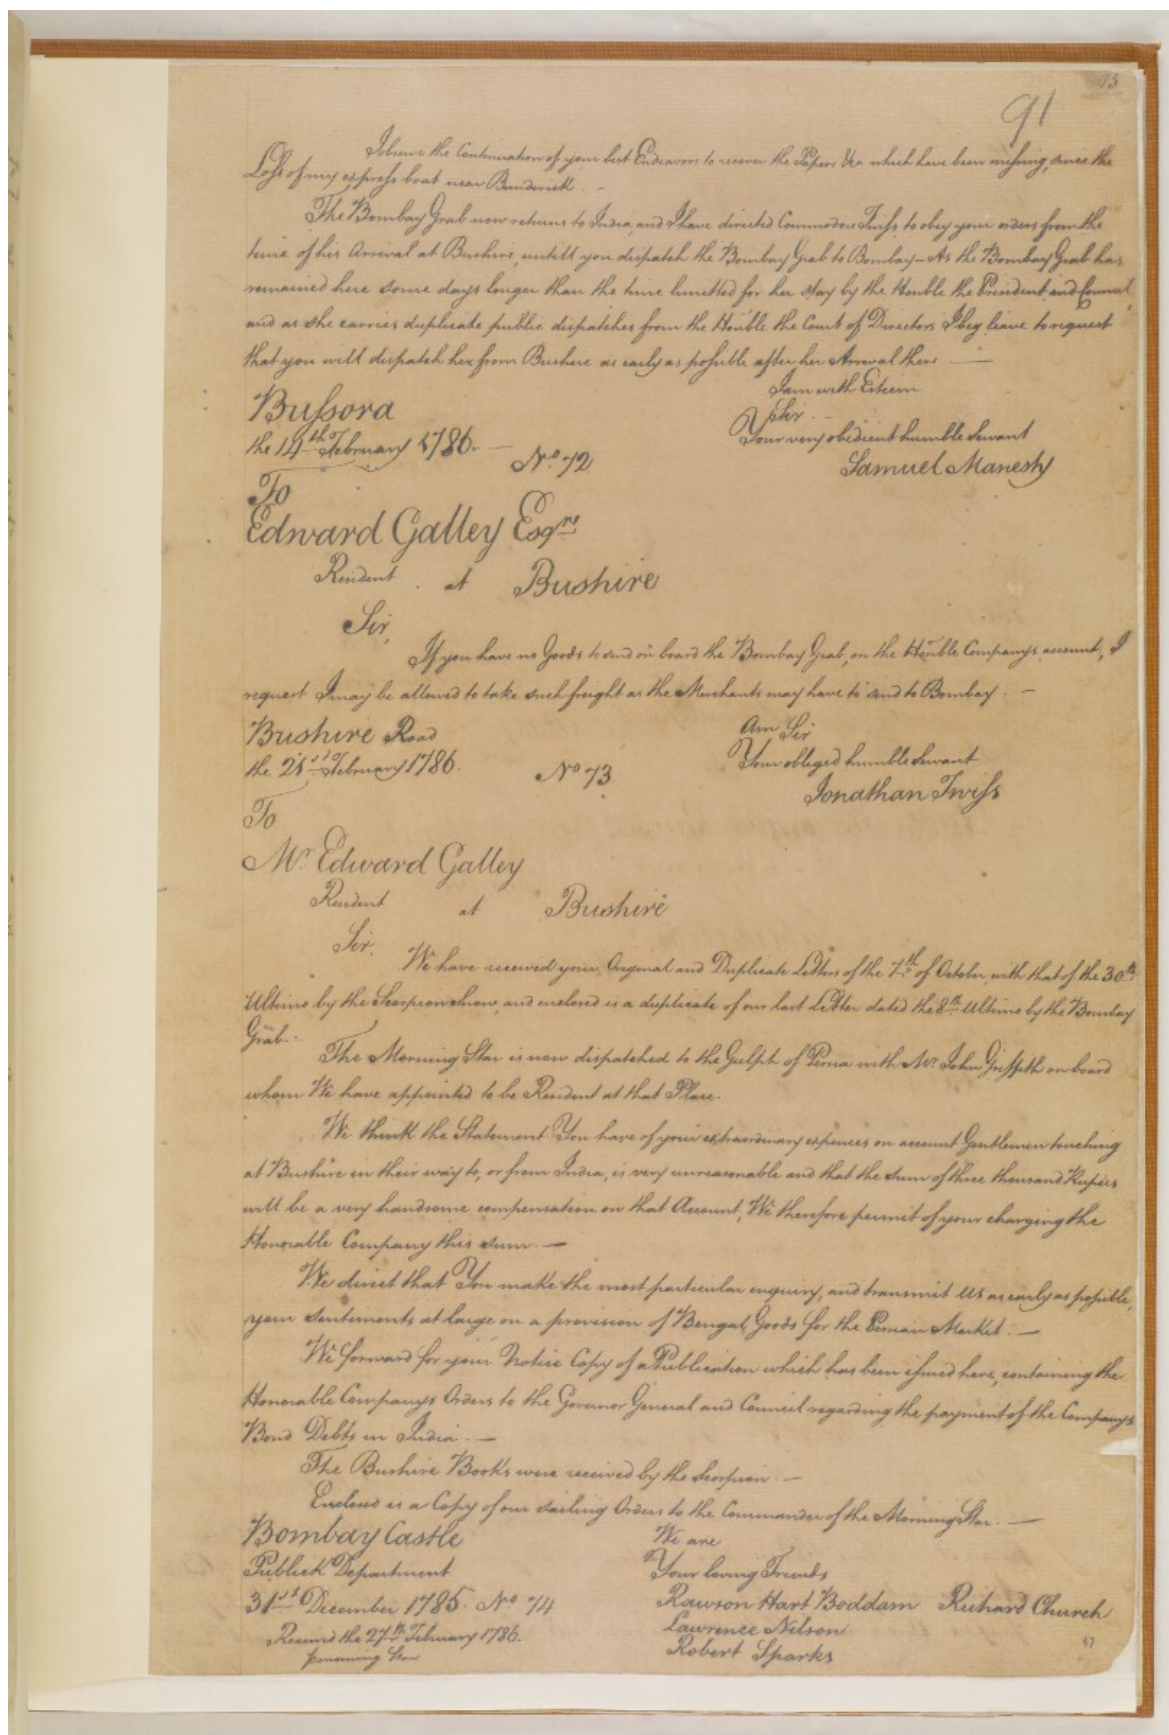 93
91
I observe the Continuation of your best Endeavors to recover the Papers &ca which have been missing, since the
Loss of my express boat near Bunderick. –
The Bombay Grab now returns to India, and I have directed Commodore Twiss to obey your orders from the
time of his Arrival at Bushire, untill you dispatch the Bombay Grab to Bombay – As the Bombay Grab has
remained here some days longer than the time limitted for her stay by the Honble the President and Council,
and as she carries duplicate public dispatches from the Honble the Court of Directors I beg leave to request
that you will dispatch her from Bushire as early as possible after her Arrival there —
I am with Esteem
Sir –
Your very obedient humble Servant
Samuel Manesty
Bussora
the 14th February 1786. —
No. 72
To
Edward Galley Esqre
Resident at Bushire
Sir,
If you have no Goods to send on board the Bombay Grab, on the Honble Companys account, I
request I may be allowed to take such freight as the Merchants may have to send to Bombay –
Am Sir
Your obliged humble Servant
Jonathan Twiss
Bushire Road
the 21st February 1786.
No 73
To
Mr Edward Galley
Resident at Bushire
Sir,
We have received your Original and Duplicate Letters of the 7th of October, with that of the 30th
Ultimo by the Scorpion Snow, and enclosed is a duplicate of our last Letter dated the 8th Ultimo by the Bombay
Grab. –
The Morning Star is now dispatched to the Gulph of Persia with Mr John Griffith on board
whom We have appointed to be Resident at that Place.
We think the Statement You have of your extraordinary expences on account Gentlemen touching
at Bushire in their way to, or from India, is very unreasonable and that the sum of three thousand Rupies
will be a very handsome compensation on that Account, We therefore permit of your charging the
Honorable Company this sum. —
We direct that You make the most particular enquiry, and transmit us as early as possible,
your sentiments at large on a provision of Bengal Goods for the Persian Market. —
We forward for your Notice Copy of a Publication which has been issued here, containing the
Honorable Companys Orders to the Governor General and Council regarding the payment of the Companys
Bond Debts in India. —
The Bushire Books were received by the Scorpion. —
Enclosed is a Copy of our sailing Orders to the Commander of the Morning Star. —
We are
Your loving Friends
Rawson Hart Boddam Richard Church
Lawrence Nilson
Robert Sparks
Bombay Castle
Publick Department
31st December 1785. No 74
Received the 27th February 1786.
p morning Star
47